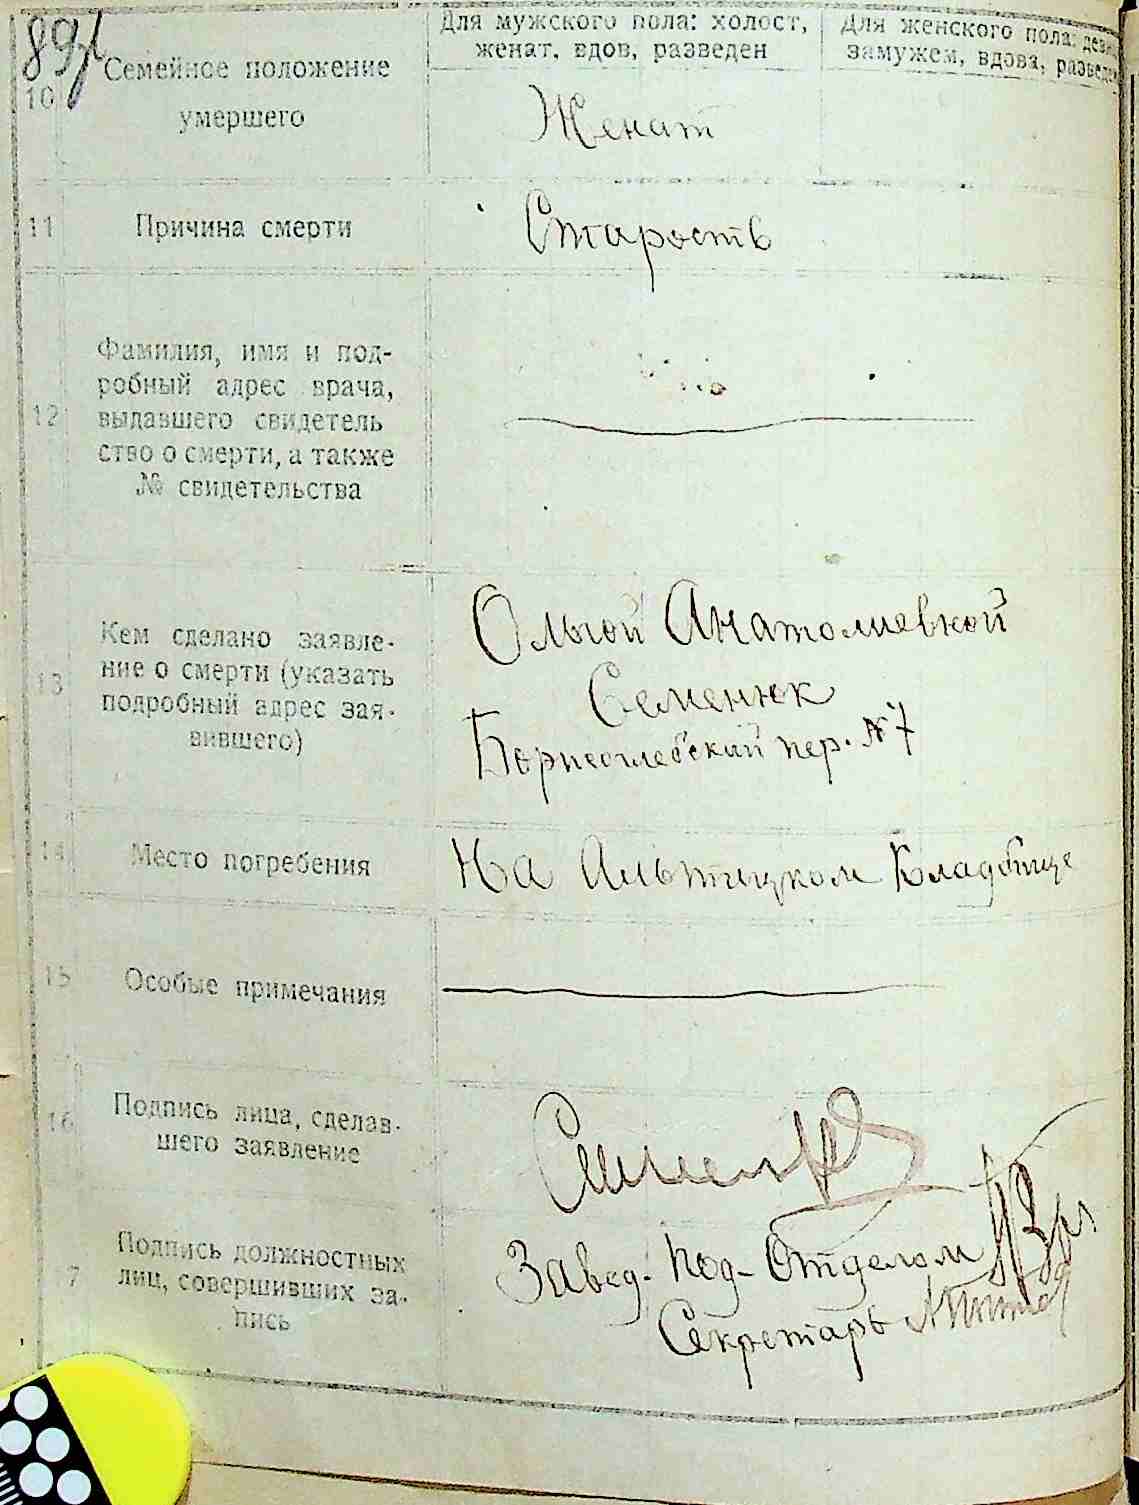 89
Для мужского пола: холост,
женат, вдов, разведен
Для женского пола: девица
замужем, вдова, разведен
10
Семейное положение
умершего
Женат
11
Причина смерти
Старость
12
Фамилия, имя и под-
робный адрес врача,
выдавшего свидетель
ство о смерти, а также
№ свидетельства
13
Кем сделано заявле-
ние о смерти (указать
подробный адрес зая-
вившего)
Ольгой Анатолиевной
Семенюк
Борисоглебский пер. № 7
14
Место погребения
На Кладбище
15
Особые примечания
16
Подпись лица, сделав-
шего заявление
7
Подпись должностных
лиц, совершивших за-
пись
Завед. Под-Отделом
Секретарь